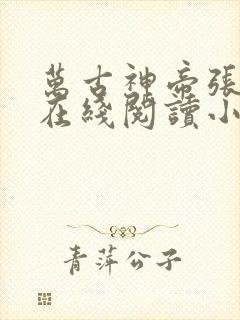 萬古神帝張
在綫閱讀小
青萍公子